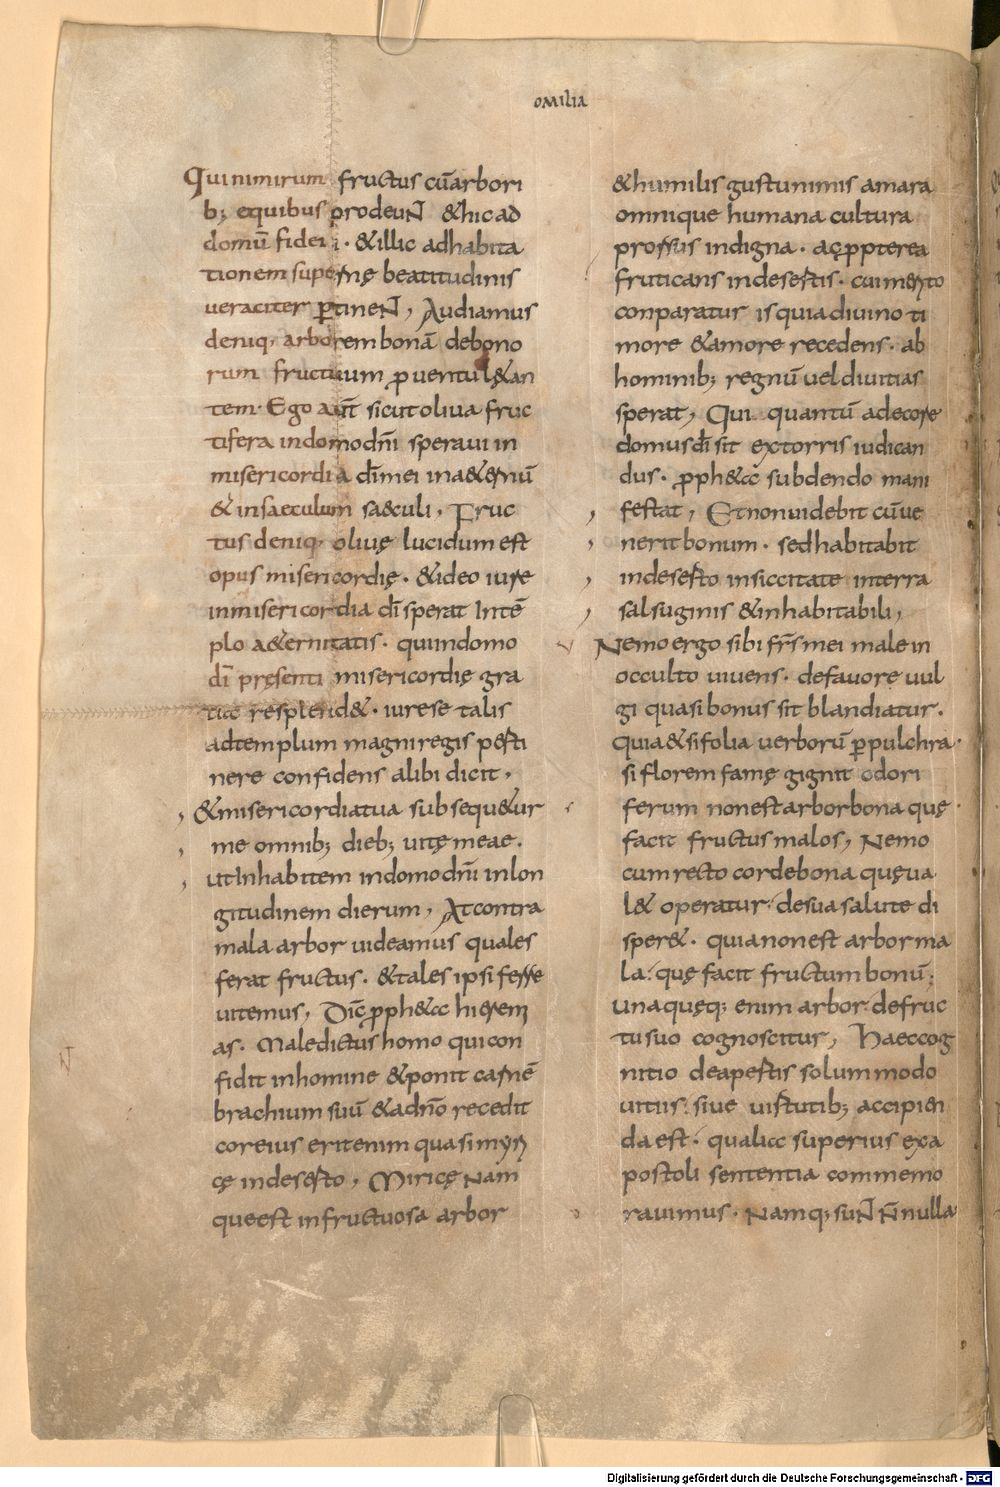 omilia
Qui nimirum fructus cū arbori
b; equibus prodeuN &hic ad
domū fidei · &illic adhabita
tionem supernę beatitudinis
veraciter ꝑtineN, Audiamus
deniq; arborem bonā debono
rum fructuum ꝓventu l&an
tem · Ego aūt sicut oliva fruc
tifera indomo dn̄i speravi in
misericordia dī mei in a&ernū
& insaeculum sa&culi, Fruc
tus deniq; olivę lucidum est
opus misericordię · &ideo iure
inmisericordia dī sperat Intē
plo a&ernitatis · qui indomo
dī pręsenti misericordię gra
tia resplend& · iurese talis
adtemplum magni regis perti
nere confidens alibi dicit,
&misericordia tua subsequ&ur
me omnib; dieb; vitę meae ·
ut Inhabitem indomo dn̄i inlon
gitudinem dierum, At contra
mala arbor videamus quales
ferat fructus · &tales ipsi ferre
vitemus, Dic̄ ꝓph&a hierem
as · Maledictus homo qui con
fidit inhomine &ponit carnē
brachium suū &adn̄o recedit
cor eius erit enim quasi myri
cę indeserto, Miricę Nam
que est infructuosa arbor
&humilis gustu nimis amara
omnique humana cultura
prorsus indigna · ac ꝓpterea
fruticans indesertis · cui merito
conparatur is qui a divino ti
more &amore recedens · ab
hominib; regnū vel divitias
sperat, Qui quantū a decore
domus dī sit extorris iudican
dus · ꝓph&a subdendo mani
festat, Et non videbit cū ve
nerit bonum · sed habitabit
indeserto insiccitate interra
salsuginis &inhabitabili,
Nemo ergo sibi fr̄s mei male in
occulto vivens · defavore vul
gi quasi bonus sit blandiatur ·
quia &si folia verborū ꝑpulchra ·
si florem famę gignit odori
ferum non est arbor bona quę
facit fructus malos, Nemo
cum recto corde bona quę va
l& operatur desua salute di
sper& · quia non est arbor ma
la · quę facit fructum bonū;
unaquęq; enim arbor defruc
tu suo cognoscitur, Haec cog
nitio deapertis solummodo
vitiis · sive virtutib; accipien
da est · qualia superius exa
postoli sententia commemo
ravimus · Namq; suN N̄nulla
N